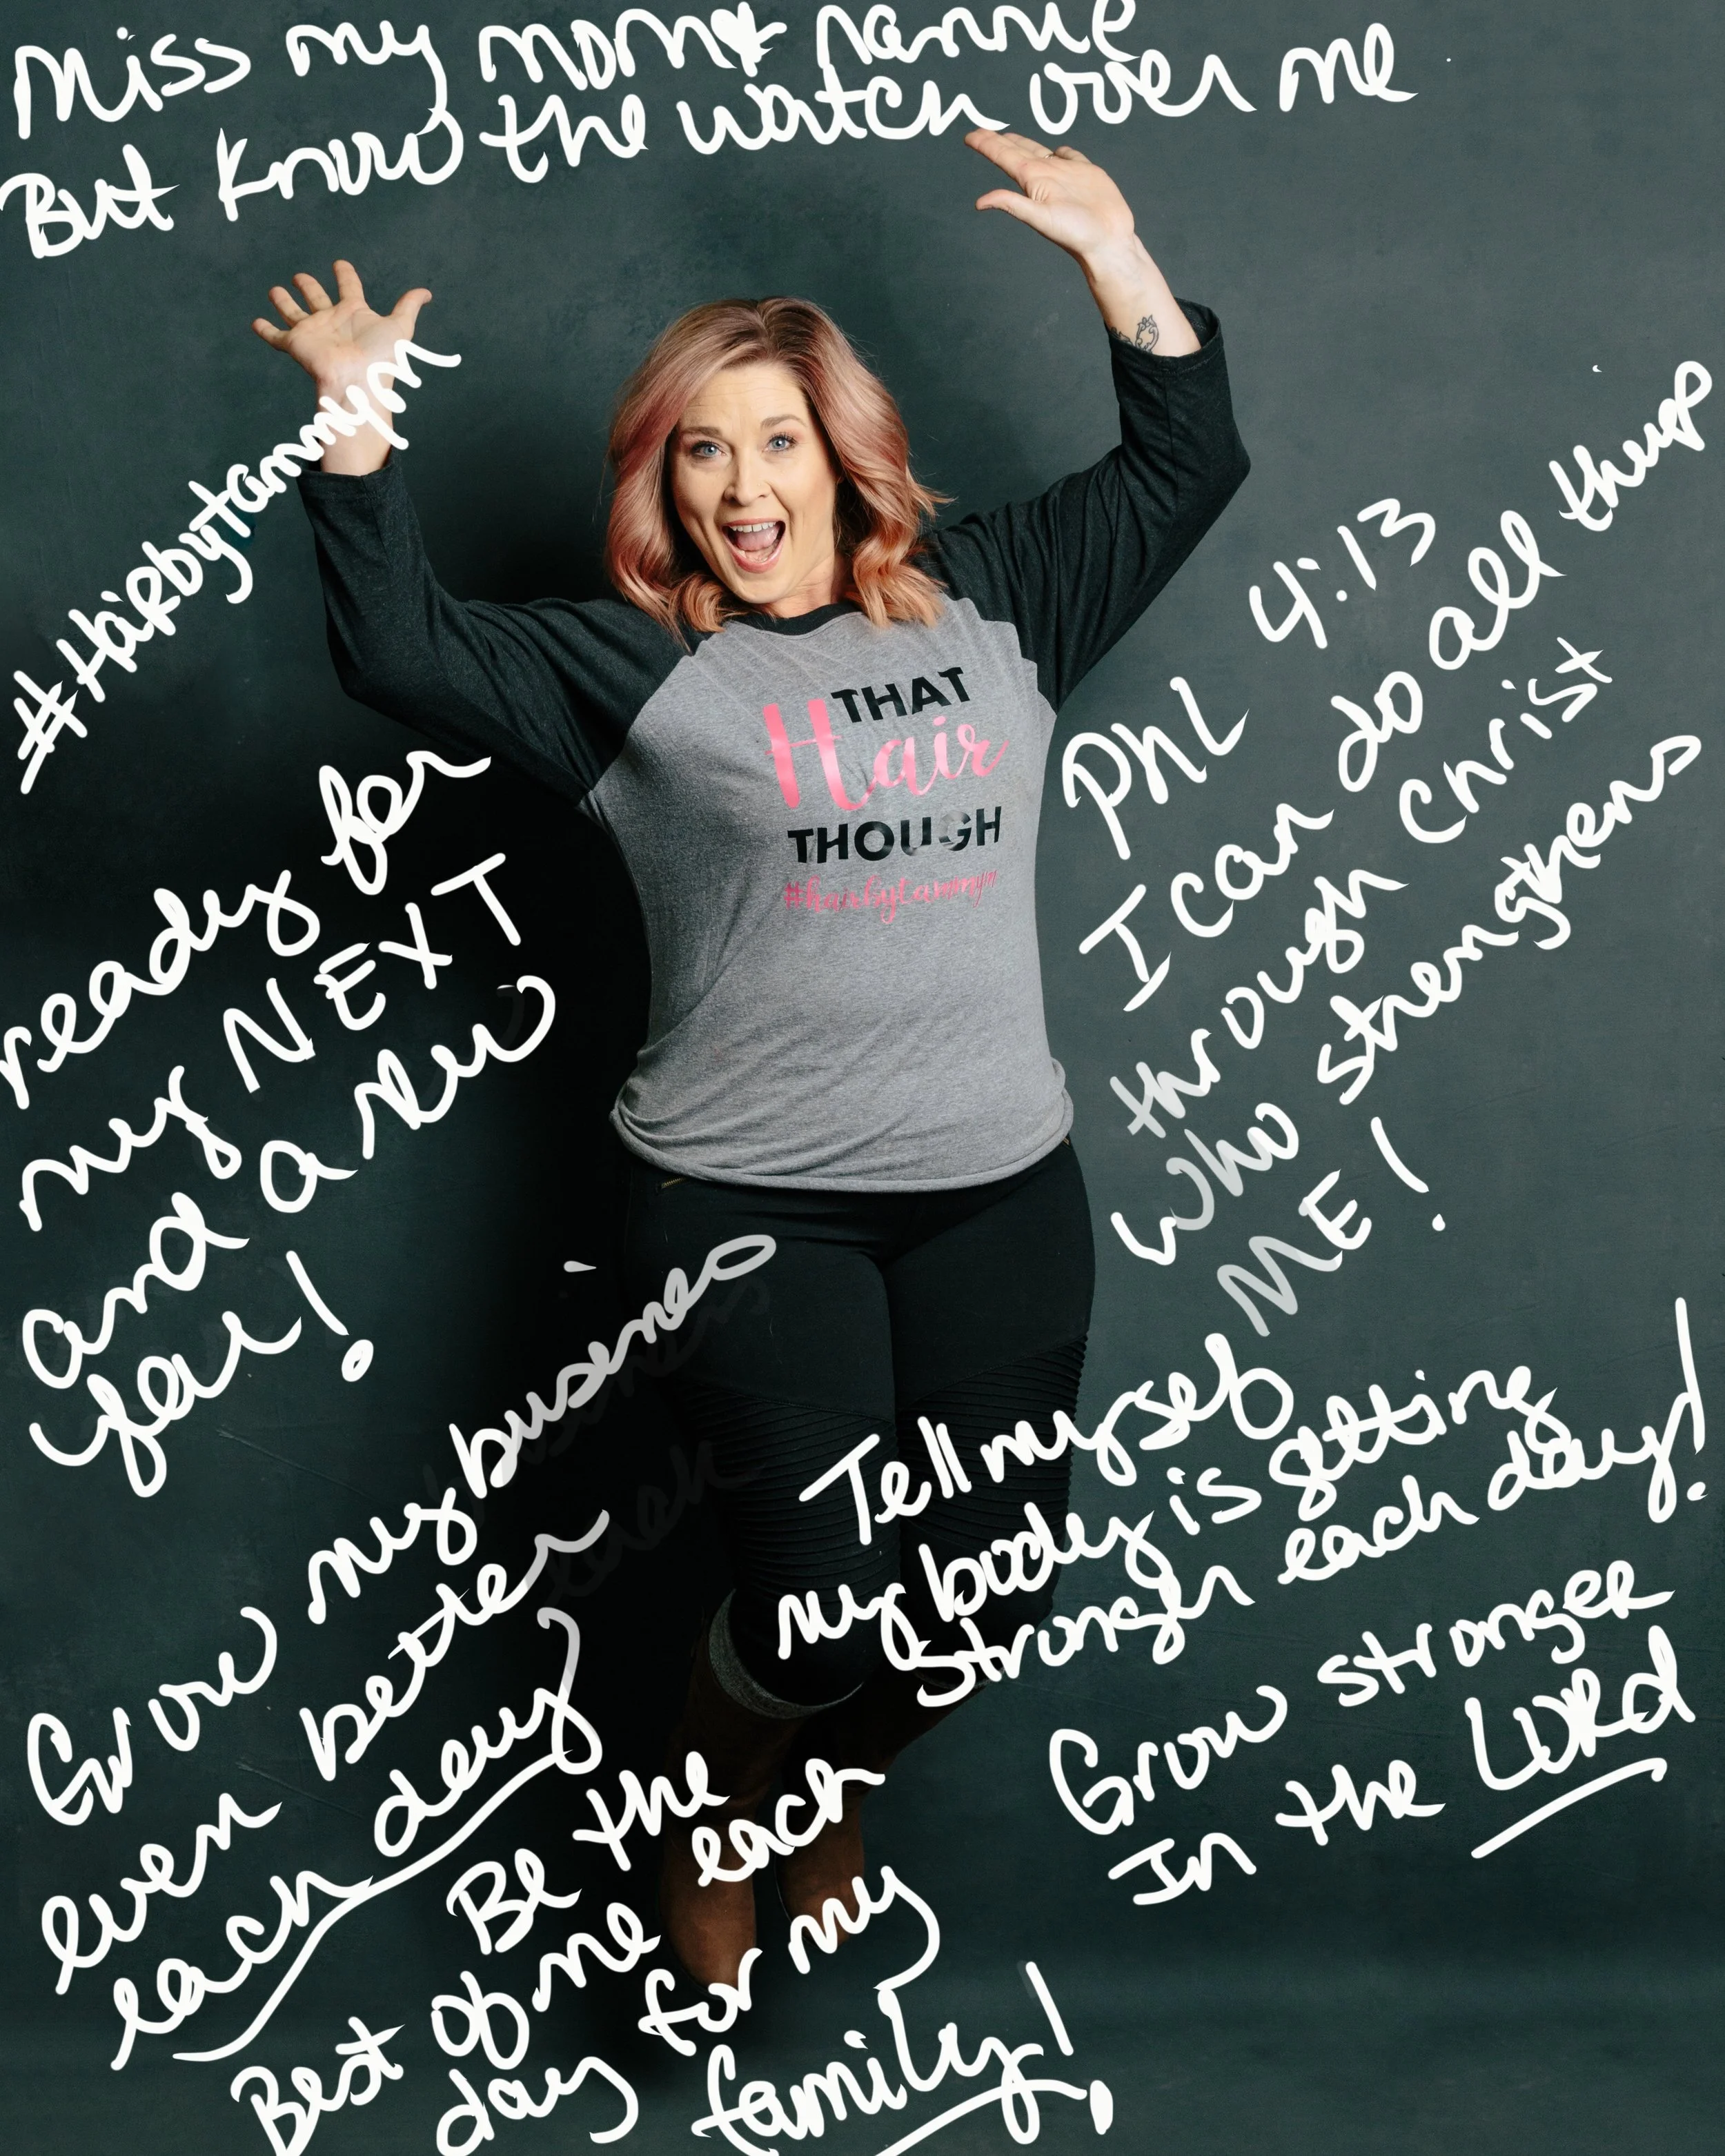 Miss my mom & nannie
But know the watch over me
#Hairbytammym
THAT
Hair
THOUGH
#hairbytammym
ready for
my NEXT
and a new
year!
Phl 4:13
I can do all things
through Christ
who strengthens
ME!
Grow my business
even better
each day
Tell myself
my body is getting
stronger each day!
Grow stronger
In the LORD
Be the
Best of me each
day for my
family!